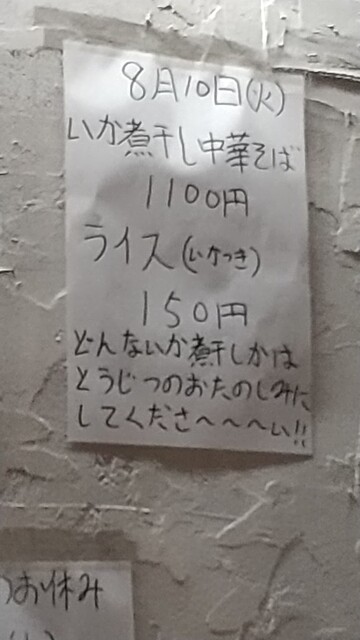 8月10日(火)
いか煮干し中華そば
1100円
ライス(いかつき)
150円
どんないか煮干しかは
とうじつのおたのしみに
してくださ〜〜〜い!!
お休み